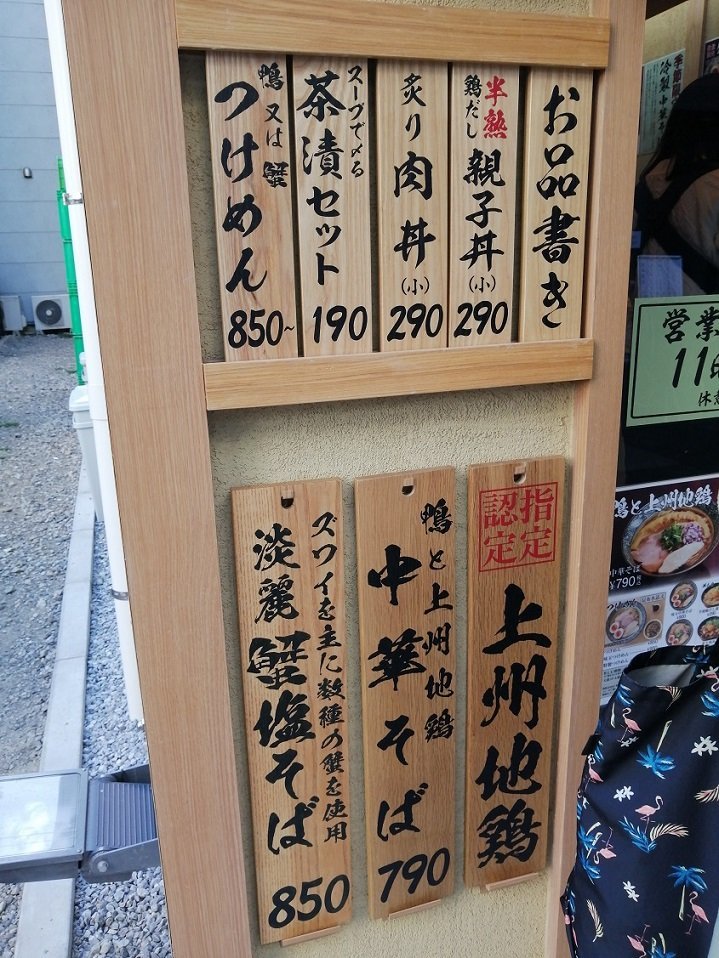 お品書き
半熟
鶏だし
親子丼(小)
290
炙り肉丼(小)
290
スープで〆る
茶漬セット
190
鴨又は蟹
つけめん
850~
指定
認定
上州地鶏
鴨と上州地鶏
中華そば
790
ズワイを主に数種の蟹を使用
淡麗蟹塩そば
850
冷製中華そ
営業
11時
鴨と上州地鶏
中華そば
¥790